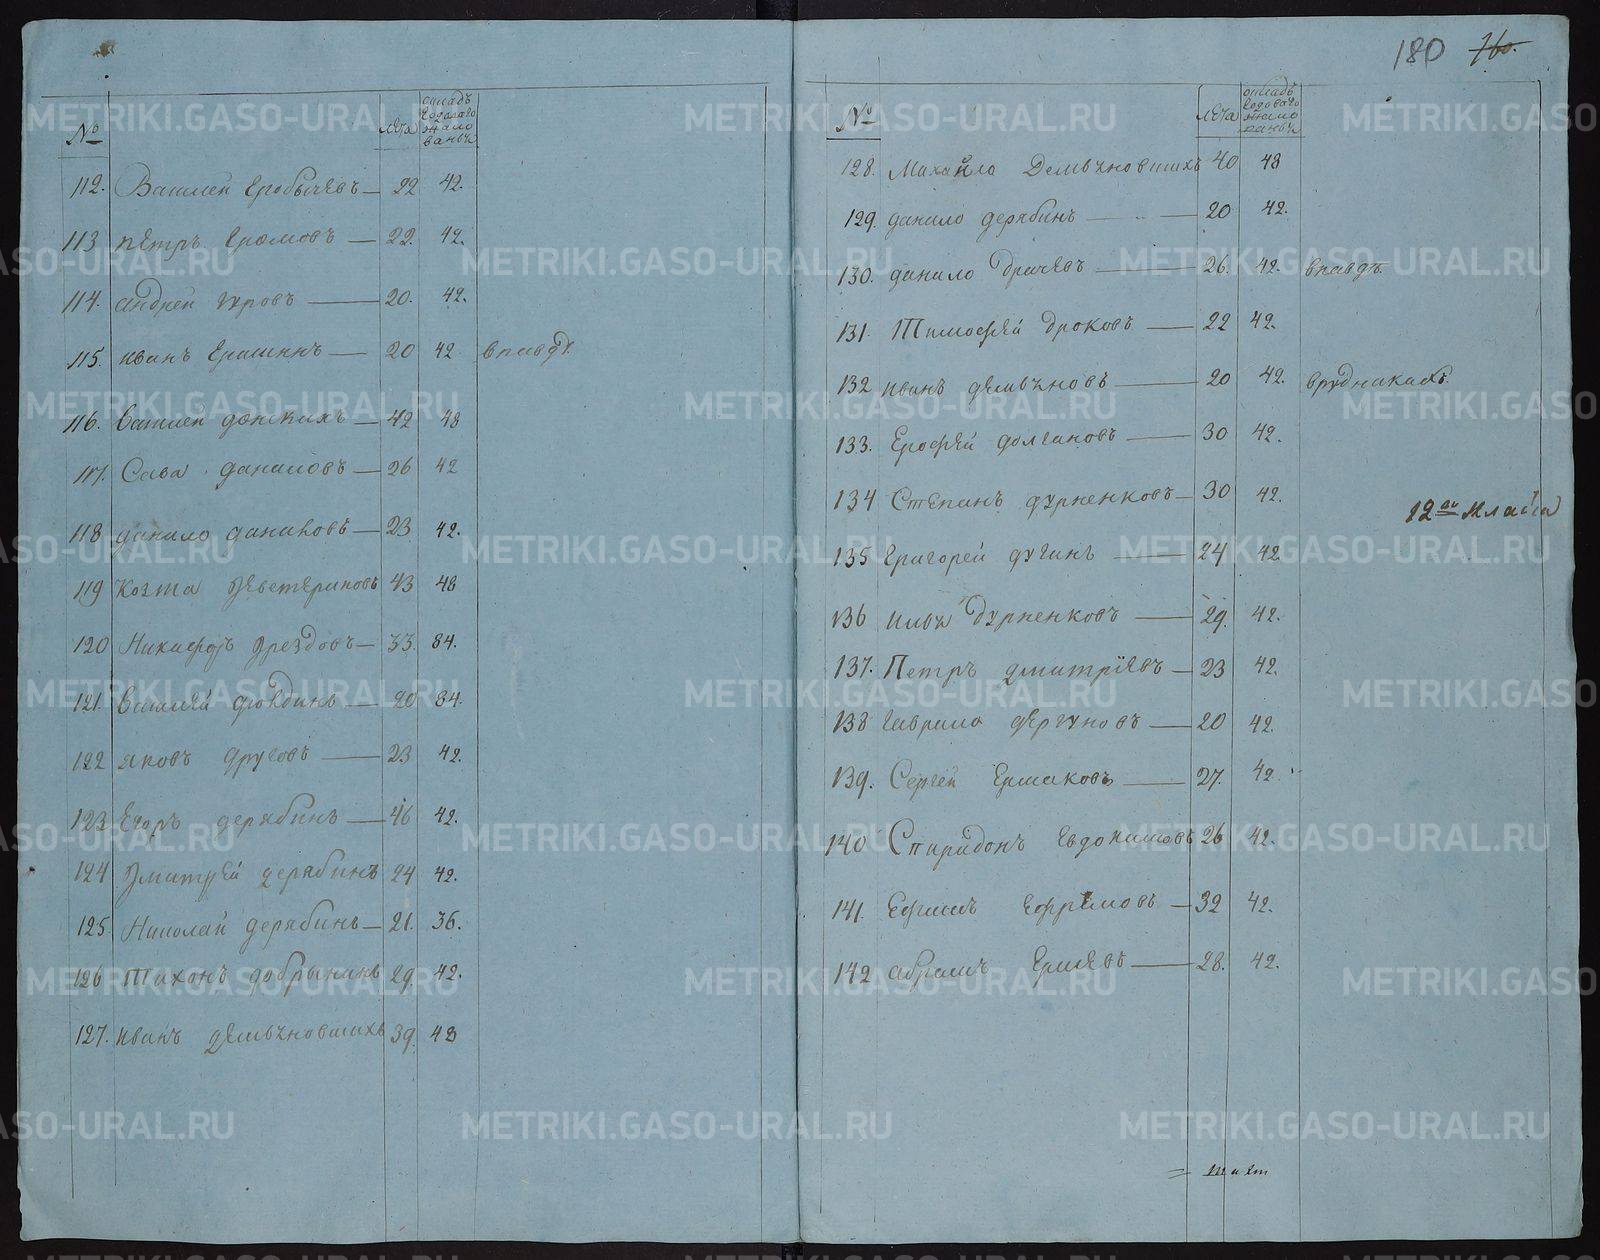 № лета окладъ годоваго жалованья
112. Василей Еробычевъ — 22 42.
113 Петръ Еромовъ — 22. 42.
114. андрей — 20. 42.
115. иванъ Ерашинъ — 20 42
116. Василей донскихъ — 42 48
117. Сава даниловъ — 26 42
118 данило даниловъ — 23 42.
119 Козма Деветериковъ 43 48
120 Никифоръ Дрездовъ — 33. 84.
121. Василей — 20 84.
122 яковъ друговъ — 23 42.
123 Егоръ дерябинъ — 46 42.
124 Дмитрей дерябинъ 24 42.
125. Николай дерябинъ — 21. 36.
126 Тихонъ добрынинъ 29. 42.
127. иванъ демьяновшихъ 39. 48
180 760.
№ лета окладъ годоваго жалованья
128. Михайло Демьяновшихъ 40 48
129. данило дерябинъ — 20 42.
130. данило Драчевъ — 26. 42.
131. Тимофей Дроковъ — 22 42.
132 иванъ демьяновъ — 20 42. в рудникахъ.
133. Ерофей долгановъ — 30 42.
134 Степанъ дурненковъ — 30 42.
12го класса
135 Григорей дугинъ — 24 42
136 илья Дурненковъ — 29. 42.
137. Петръ дмитріевъ — 23 42.
138 гаврило дергуновъ — 20 42.
139. Сергей Ермаковъ — 27. 42
140 Спиридонъ Евдокимовъ 26 42.
141. Ефимъ Ефремовъ — 32 42.
142 абрамъ Ершевъ — 28. 42.
METRIKI.GASO-URAL.RU